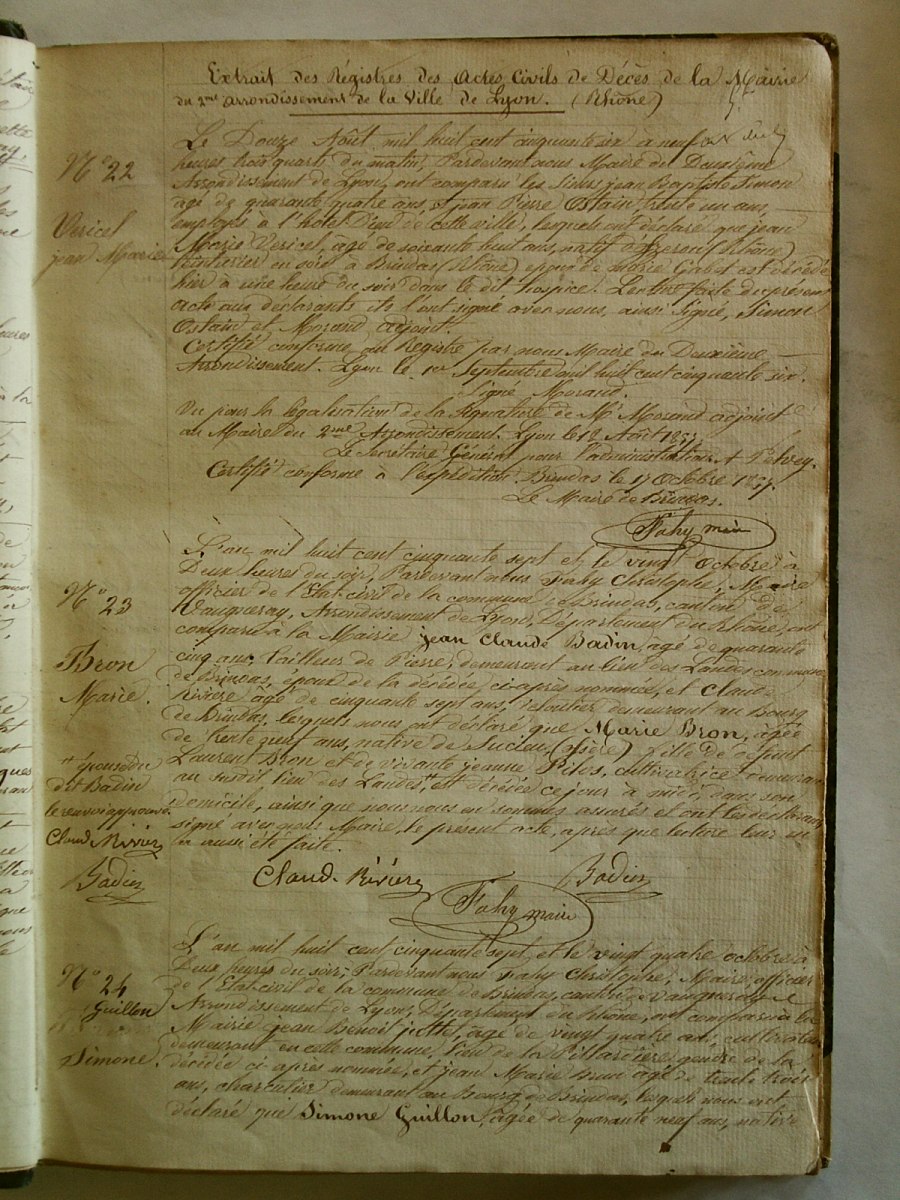 Extrait des Régistres des Actes Civils de Décès de la Mairie
du 2me Arrondissement de la Ville de Lyon. (Rhône)
N° 22
Vericel
jean Marie
Le Douze Août mil huit cent cinquante six à neuf
heures trois quarts du matin, Pardevant nous Maire du Deuxième
Arrondissement de Lyon, ont comparu les Sieurs jean Baptiste Simon
âgé de quarante quatre ans, et jean Pierre Ostain trente un ans,
employés à l'hôtel Dieu de cette ville, lesquels ont déclaré que jean
Marie Vericel, âgé de soixante huit ans, natif (Rhône)
teinturier en soie à Brindas (Rhône) epoux de marie Gabet est décédé
hier à une heure du soir dans le dit hospice. Lecture faite du présent
acte aux déclarants ils l'ont signé avec nous, ainsi Signé, Simon
Ostain et Morand adjoint.
Certifié conforme au Registre par nous Maire du Deuxième
Arrondissement. Lyon le 1er Septembre mil huit cent cinquante six.
Signé Morand
Vu pour la légalisation de la Signature de Mr Morand adjoint
au Maire du 2me Arrondissement. Lyon le 18 Août 1857.
Le Secrétaire Général pour l'administration
Certifié conforme à l'expédition. Brindas le 17 Octobre 1857.
Le Maire de Brindas.
Fahy maire
N° 23
Bron
Marie.
L'an mil huit cent cinquante sept et le vingt Octobre à
Deux heures du soir, Pardevant nous Fahy Christophe, Maire
officier de l'Etat civil de la commune de Brindas, canton de
Vaugneray, Arrondissement de Lyon, Département du Rhône, ont
comparu à la Mairie jean Claude Badin, âgé de quarante
cinq ans, tailleur de Pierre, demeurant au lieu des Landes commune
de Brindas, époux de la décédée ci-après nommée, et Claude
Rivière âgé de cinquante sept ans, demeurant au Bourg
de Brindas, lesquels nous ont déclaré que Marie Bron, âgée
de trente neuf ans, native de (Isère) fille de défunt
Laurent Bron et de vivante jeanne Pilos, cultivatrice demeurant
au susdit lieu des Landes, est décédée ce jour à midi, dans son
domicile, ainsi que nous nous en sommes assurés et ont les déclarants
signé avec nous Maire, le présent acte, après que lecture leur en
a aussi été faite.
épouse du
dit Badin
le renvoi approuvé
Claude Rivière
Badin
Claude Rivière
Badin
Fahy maire
N° 24
Guillon
Simone.
L'an mil huit cent cinquante sept, et le vingt quatre octobre à
Deux heures du soir, Pardevant nous Fahy Christophe, Maire, officier
de l'Etat civil de la commune de Brindas, canton de Vaugneray
Arrondissement de Lyon, Département du Rhône, ont comparu à la
Mairie jean Benoit juttet, âgé de vingt quatre ans, cultivateur
demeurant en cette commune, lieu de la Pillardière, gendre de la
décédée ci-après nommée, et jean Marie Brun âgé de trente trois
ans, charcutier demeurant au Bourg de Brindas, lesquels nous ont
déclaré que Simone Guillon, âgée de quarante neuf ans, native